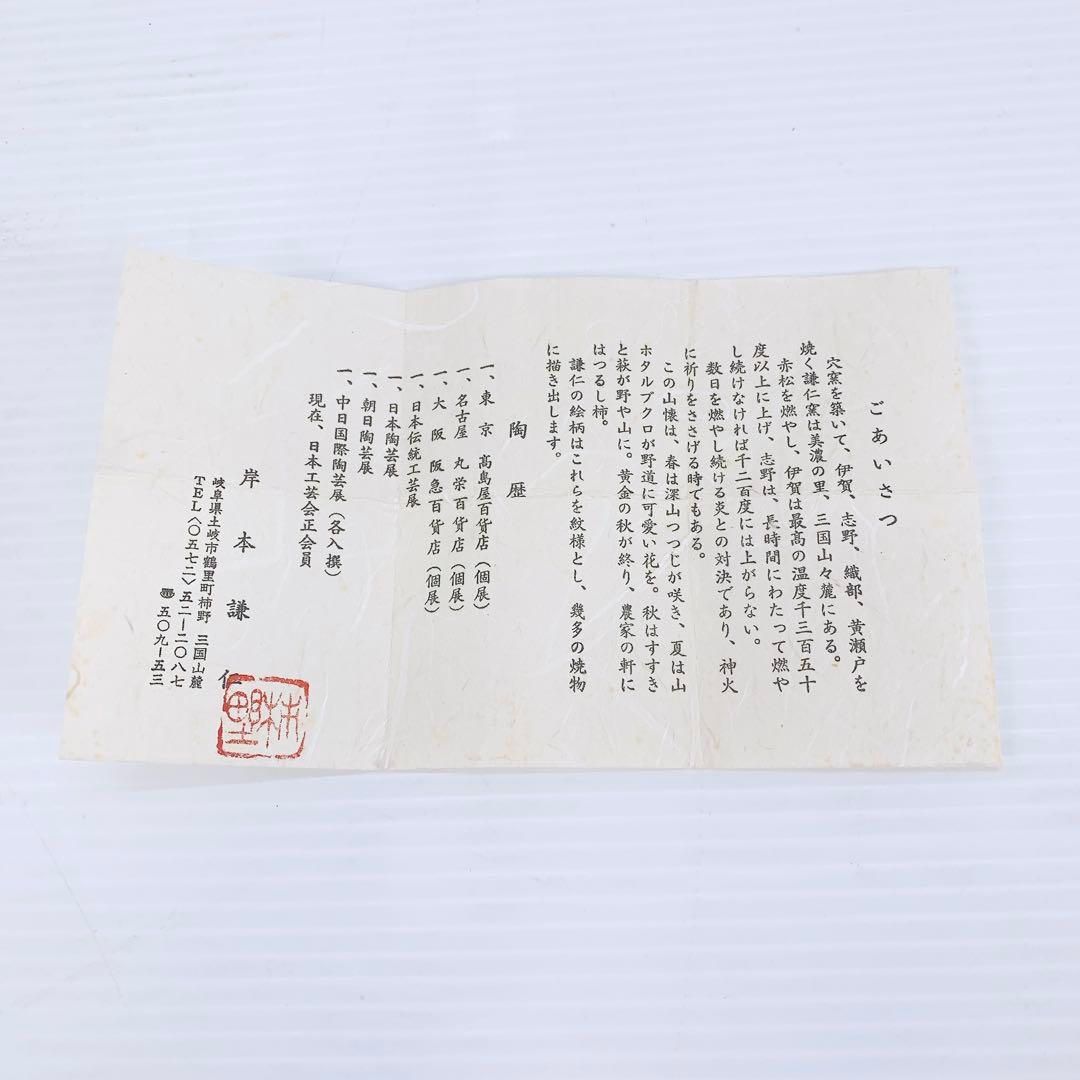 ごあいさつ
穴窯を築いて、伊賀、志野、織部、黄瀬戸を
焼く謙仁窯は美濃の里、三国山々麓にある。
赤松を燃やし、伊賀は最高の温度千三百五十
度以上に上げ、志野は、長時間にわたって燃や
し続けなければ千二百度には上がらない。
数日を燃やし続ける炎との対決であり、神火
に祈りをささげる時でもある。
この山懐は、春は深山つつじが咲き、夏は山
ホタルブクロが野道に可愛い花を。秋はすすき
と萩が野や山に。黄金の秋が終り、農家の軒に
はつるし柿。
謙仁の絵柄はこれらを紋様とし、幾多の焼物
に描き出します。
陶歴
一、東京 高島屋百貨店(個展)
一、名古屋 丸栄百貨店(個展)
一、大阪 阪急百貨店(個展)
一、日本伝統工芸展
一、日本陶芸展
一、朝日陶芸展
一、中日国際陶芸展(各入撰)
現在、日本工芸会正会員
岸本謙仁
岐阜県土岐市鶴里町柿野 三国山麓
TEL〈〇五七二〉五二ー二〇八七
〠 五〇九ー五三
柿野